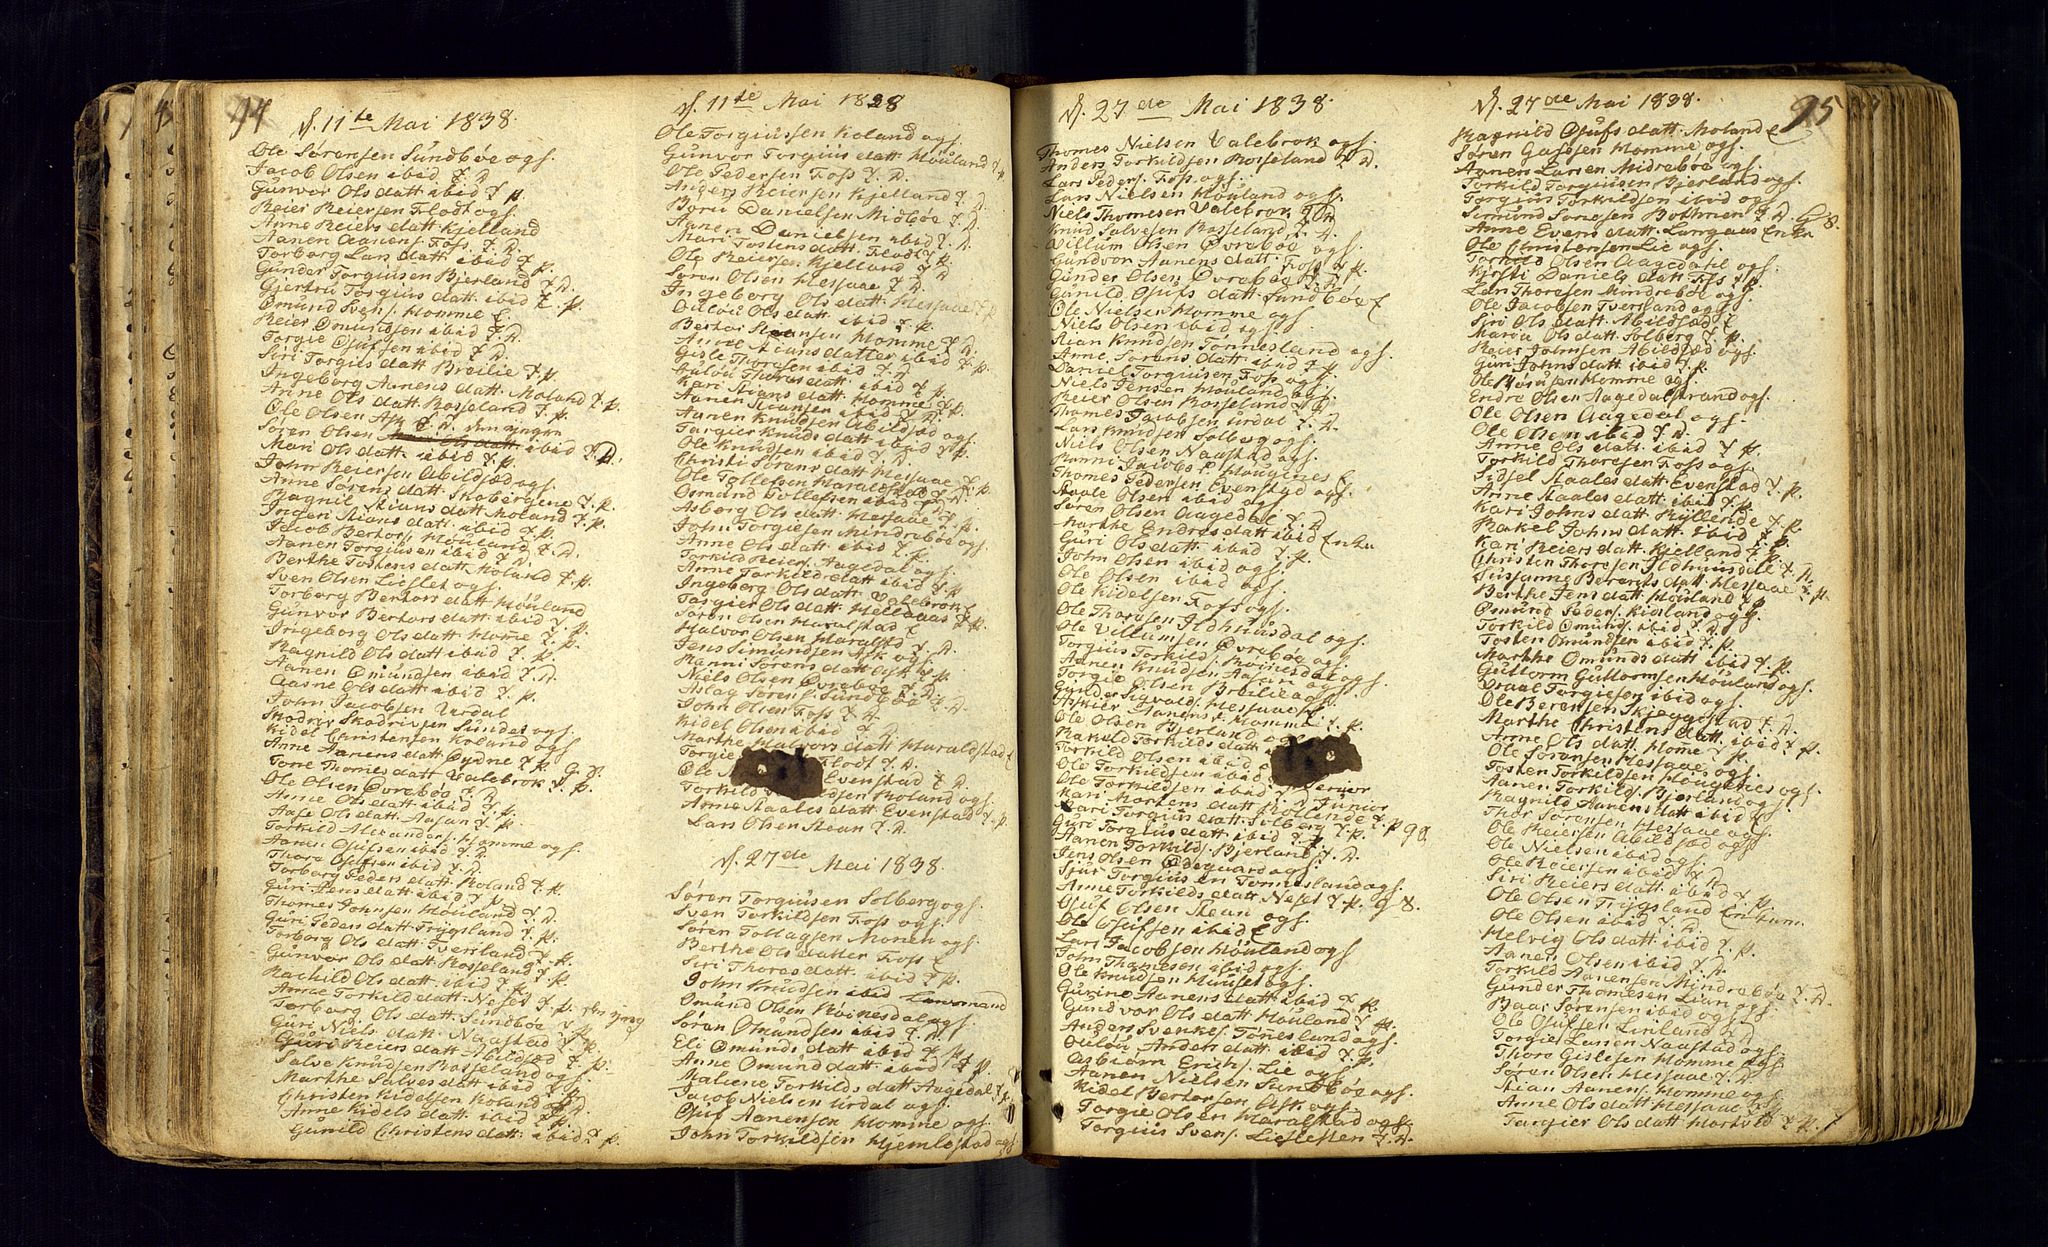 94
d. 11te Mai 1838.
Ole Sørensen Sundbøe ogf.
Jacob Olsen ibid J. D.
Gunvor Ols datt ibid J. p.
Reier Reiersen Flodt ogf.
Anne Reiers datt Kjelland
Aanen Aanens. Foss J. D.
Torborg Lars datt ibid J. p.
Gunder Torgiusen Bjerland J. D.
Gjertru Torgius datt ibid J. p.
Omund Svens. Homme E
Reier Omundsen ibid J. D.
Torgie Ojufsen ibid J. D.
Siri Torgius datt Breilie J. p.
Ingeborg Aanens datt Moland J. p.
Anne Ols datt Rosseland J. p.
Ole Olsen Ask J. D.
Søren Olsen ibid J. D.
Mari Ols datt ibid J. p.
John Reiersen Abildsæd ogf.
Anne Sørens datt Skobergene J. p.
Ragnil Stians datt Moland J. p.
Ingeri Stians datt ibid J. p.
Jacob Bertors. Houland J. D.
Aanen Torgiusen ibid J. D.
Berthe Tostens datt Koland J. p.
Sven Olsen Lieslet ogf.
Torborg Bertors datt Houland
Gunvor Bertors datt ibid J. p.
Ingeborg Ols datt Home J. p.
Ragnild Ols datt ibid J. p.
Aanen Omundsen ibid J. D.
Aasne Ols datt ibid J. p.
John Jacobsen Urdal
Skodver Skodversen Sundet ogf.
Kidel Christensen Koland ogf
Anne Aanens datt Øydne J. p. G. 8.
Tone Thomes datt Valebrok J. p.
Ole Olsen Øvrebøe J. D.
Anne Ols datt ibid J. p.
Aase Ols datt Aasan J. p.
Torkild Alexanders. Homme ogf.
Aanen Ojufsen ibid J. D.
Thore Ojufsen ibid J. D.
Torborg Peders datt Koland J. p.
Guri Jens datt ibid J. p.
Thomes Johnsen Houland J. D.
Guri Peders datt Trygsland J. p.
Torborg Ols datt Tversland J. p.
Gunvor Ols datt Rosseland J. p.
Rachild Ols datt ibid J. p.
Anne Torkild datt Neset J. p.
Torborg Ols datt Sundbøe J. p.
Guri Niels datt Naastad J. p.
Guri Reiers datt Abildsæd J. p.
Salve Knudsen Rosseland ogf.
Marthe Salves datt ibid J. p.
Christen Kiddelsen Koland J. D.
Anne Kidels datt ibid J. p.
Gunild Christens datt ibid J. p.
d. 11te Mai 1838
Ole Torgiussen Koland ogf.
Gunvor Torgius datt Houland J. p.
Ole Pedersen Foss J. D.
Anders Reiersen Kjelland J. D.
Boru Danielsen Midbøe J. D.
Aanen Danielsen ibid J. D.
Mari Tostens datt Flodt J. p.
Ole Reiersen Kjelland J. D.
Søren Olsen Messaae J. D.
Ingeborg Ols datt Messaae J. p.
Oulou Ols datt ibid J. p.
Bertor Steansen Homme J. D.
Anne Stians datter ibid J. p.
Gisle Thoresen ibid J. D.
Aulou Thores datt ibid J. p.
Kari Stians datt Homme J. p.
Aanen Steansen ibid J. D.
Aanen Knudsen Abildsæd ogf.
Targier Knuds datt ibid J. p.
Ole Knudsen ibid J. D.
Christi Sørens datt Messaae J. p.
Ole Tollefsen Haralstad J. D.
Osmund Tollefsen ibid J. D.
Asborg Ols datt Messaae J. p.
John Torgiesen Mindrebøe ogf.
Anne Ols datt ibid J. p.
Torkild Reiers. Aagedal ogf.
Anne Torkild datt ibid J. p.
Ingeborg Ols datt Valebrok E
Targier Ols datt Hellaaas J. p.
Søren Olsen Haralstad E
Halvor Olsen Haralstd J. D.
Jens Simundsen Ask ogf.
Ranni Sørens datt Ask J. p.
Niels Olsen Øvrebøe J. D.
Aslag Sørens. Sundbøe J. D.
John Olsen Foss J. D.
Kidel Olsen ibid J. D.
Marthe Halvors datt Haralstad E
Torgie Flodt J. D.
Ole Evenstad J. D.
Torkild Koland ogf.
Anne Staales datt Evenstad J. p.
Lars Olsen Stean J. D.
d. 27de Mai 1838.
Søren Torgiusen Solberg ogf.
Sven Torkildsen Foss ogf.
Søren Tollagsen Monen ogf.
Berthe Ols datter Foss E
Siri Thores datt ibid J. p.
John Knudsen ibid Lensmand
Omund Olsen Roinesdal ogf.
Søren Omundsen ibid J. D.
Eli Omunds datt ibid J. p.
Anne Omund datt ibid J. p.
Maliene Torkilds datt Aagedal J. p.
Jacob Nielsen Urdal ogf.
Ojuf Aanensen Homme ogf.
John Torkildsen Hjemlestad ogf.
95
d. 27de Mai 1838.
Thomes Nielsen Valebrok ogf.
Anders Torkildsen Rosseland J. D.
Lars Peders. Foss ogf.
Lars Nielsen Houland ogf.
Niels Thomesen Valebrok J. D.
Knud Salvesen Rosseland J. D.
Villum Olsen Øvrebøe ogf.
Gundvor Aanens datt. Foss J. p.
Gunder Olsen Øvrebøe J. D.
Gunild Ojufs datt Sundbøe E
Ole Nielsen Homme ogf.
Niels Olsen ibid ogf.
Stian Knudsen Tønnesland ogf.
Anne Sørens datt ibid J. p.
Daniel Torgiusen Foss ogf.
Niels Jensen Houland ogf.
Reier Olsen Rosseland J. D.
Thomes Jacobsen Urdal J. D.
Lars Knudsen Solberg ogf.
Niels Olsen Naastad ogf.
Ranni Jacobs D. Hougenes E
Thomes Pedersen Evenstad ogf.
Staale Olsen ibid ogf.
Søren Olsen Aagedal J. D.
Marthe Endres datt ibid Enke
Guri Ols datt ibid J. p.
John Olsen ibid ogf.
Ole Olsen ibid ogf.
Ole Kidelsen Foss ogf.
Ole Thoresen Ildhuusdal ogf.
Ole Villumsen Øvrebøe ogf.
Torgius Torkilds. Roinesdal ogf.
Aanen Knudsen Aasan ogf.
Torgie Olsen Breilie ogf.
Gunder Sigvalds. Messaae
Askier Aanens d. Homme J. p.
Ole Olsen Bjerland ogf.
Rakild Torkilds datt ibid
Torkild Olsen ibid
Ole Torkildsen ibid Senior
Ole Torkildsen ibid J. D. Junior
Kari Mortens datt Kollende J. p.
Kari Torgius datt Solberg J. p. G 8
Guri Torgius datt ibid J. p.
Aanen Torkilds. Bjerland J. D.
Jens Olsen Ødegaard ogf.
Sjur Torgiusen Tonnesland ogf.
Anne Torkilds datt Neset J. p. G. 8.
Ojuf Olsen Stean ogf.
Ole Ojufsen ibid E
Lars Jacobsen Houland ogf
John Thomesen ibid ogf.
Ole Knudsen Huuset ogf.
Gurine Aanens datt ibid J. p.
Gundvor Ols datt Houland J. p.
Anders Svenkes. Tonesland ogf.
Oulou Anders datt ibid J. p.
Asbiørn Erichs. Lie ogf.
Aanen Nielsen Sundbøe ogf.
Kidel Bertorsen Ask ogf.
Torgie Olsen Haralstad ogf.
Torgius Svens. Liesletten J. D.
d. 27de Mai 1838.
Ragnild Ojufs datt Moland E
Søren Gabsen Homme ogf.
Aanen Larsen Midrebøe ogf.
Torkild Torgiusen Bjerland ogf.
Torgius Torkildsen ibid ogf.
Simund Sørgsen Bothnen J. D. G 8.
Anne Evens datt Langaas Enke
Ole Christensen Lie ogf.
Torkild Olsen Aagedahl ogf.
Kirsti Daniels datt Foss J. p.
Lars Thoresen Mindrebøe ogf.
Ole Jacobsen Tversland ogf.
Siri Ols datt Abildsæd E
Maria Ols datt Solberg J. p.
Reier Johnsen Abildsæd ogf.
Guri Johns datt ibid J. p.
Ole Borusen Homme ogf.
Endre Olsen Aagedalstrand ogf.
Ole Olsen Aagedal ogf.
Ole Olsen ibid J. D.
Anne Ols datt ibid J. p.
Torkild Thoresen Foss ogf.
Sidsel Staales datt Evenstad J. p.
Anne Staales datt ibid J. p.
Kari Johns datt Kyllende J. p.
Rakel Johns datt ibid J. p.
Kari Reiers datt Kjelland J. p.
Christen Thoresen Ildhuusdal J. D.
Sussanne Berents datt Messaae J. p.
Berthe Jens datt Houland J. p.
Omund Peders. Kioland ogf.
Torkild Omunds. ibid J. D.
Tosten Omundsen ibid J. D.
Marthe Omunds datt ibid J. p.
Guttorm Guttormsen Houland ogf.
Draal Torgiesen ibid ogf.
Ole Berensen Skjeggestad J. D.
Marthe Christens datt ibid J. p.
Anne Ols datt Home J. p.
Ole Sørensen Messaae ogf.
Tosten Torkildsen Hougenes ogf.
Aanen Torkilds. Bjerland ogf.
Ragnild Aanens datt ibid J. p.
Thor Sørensen Messaae ogf.
Ole Reiersen Abildsæd ogf.
Ole Nielsen ibid ogf.
Ole Reiersen ibid J. D.
Siri Reiers datt ibid J. p.
Ole Olsen Trygsland Enkem.
Ole Olsen ibid J. D.
Helvig Ols datt ibid J. p.
Aanen Olsen ibid J. D.
Torkild Aanensen Mindrebøe J. D.
Gunder Thomesen Lian ogf.
Baar Sørensen ibid ogf.
Ole Ojufsen Linland J. D.
Torgie Larsen Naastad ogf.
Thore Gislesen Homme ogf.
Søren Olsen Messaae J. D.
Stian Aanens. Homme ogf.
Anne Ols datt Messaae J. p.
Targier Ols datt J. p.